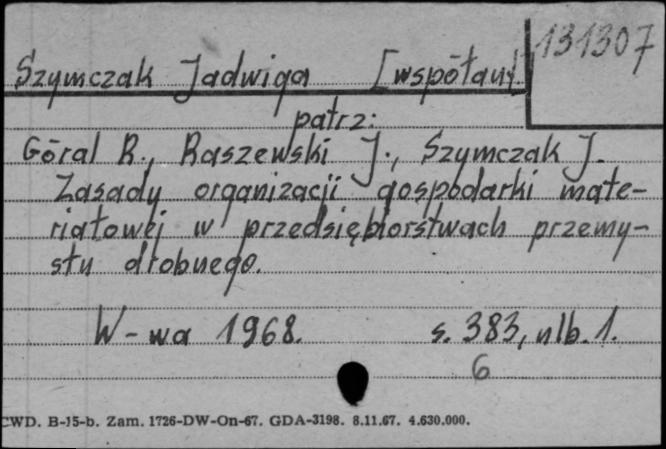 131307
Szymczak Jadwiga [współaut.]
patrz:
Góral R., Raszewski J., Szymczak J.
Zasady organizacji gospodarki mate-
riałowej w przedsiębiorstwach przemy-
słu drobnego.
W-wa 1968. s. 383, nlb. 1.
6
CWD. B-15-b. Zam. 1726-DW-On-67. GDA-3198. 8.11.67. 4.630.000.